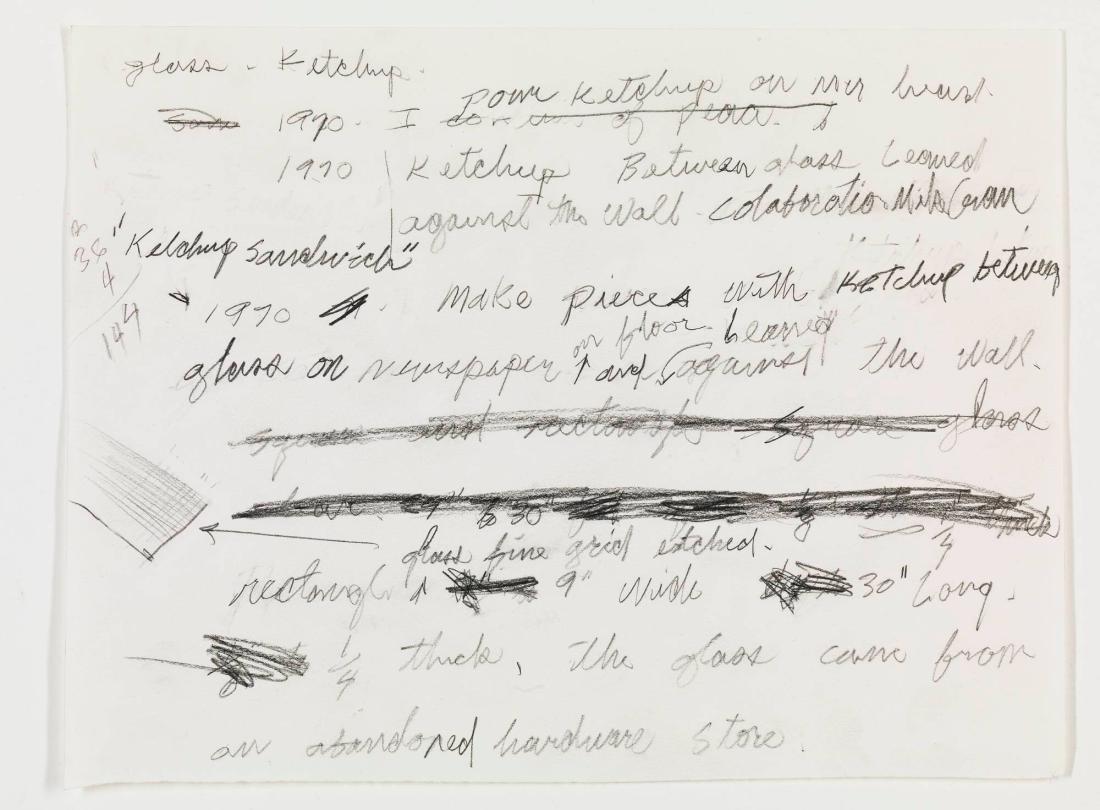 glass - Ketchup.
pour Ketchup on my head.
1970 - I
1970 Ketchup Between glass Leaned
against the Wall - Colaboratio
"Ketchup Sandwich"
36
4
144
1970 . Make pieces with Ketchup between
on floor Leaned
glass on newspaper and against the wall.
square and rectangle square glass
9" 30" 1/4 thick
glass fine grid etched.
rectangle 9" wide 30" Long.
1/4 thick, the glass came from
an abandoned hardware store.